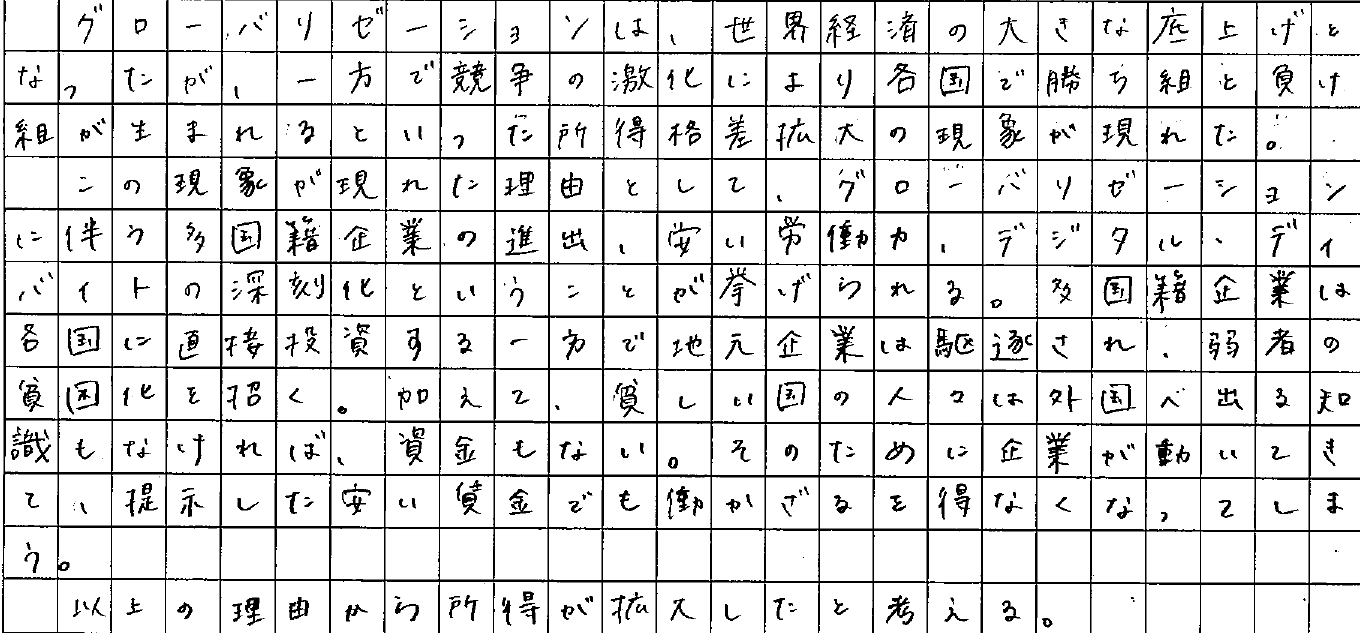 グローバリゼーションは、世界経済の大きな底上げと
なったが、一方で競争の激化により各国で勝ち組と負け
組が生まれるといった所得格差拡大の現象が現れた。
この現象が現れた理由として、グローバリゼーション
に伴う多国籍企業の進出、安い労働力、デジタル、ディ
バイトの深刻化ということが挙げられる。多国籍企業は
各国に直接投資する一方で地元企業は駆逐され、弱者の
貧困化を招く。加えて、貧しい国の人々は外国へ出る知
識もなければ、資金もない。そのために企業が動いてき
て、提示した安い賃金でも働かざるを得なくなってしま
う。
以上の理由から所得が拡大したと考える。